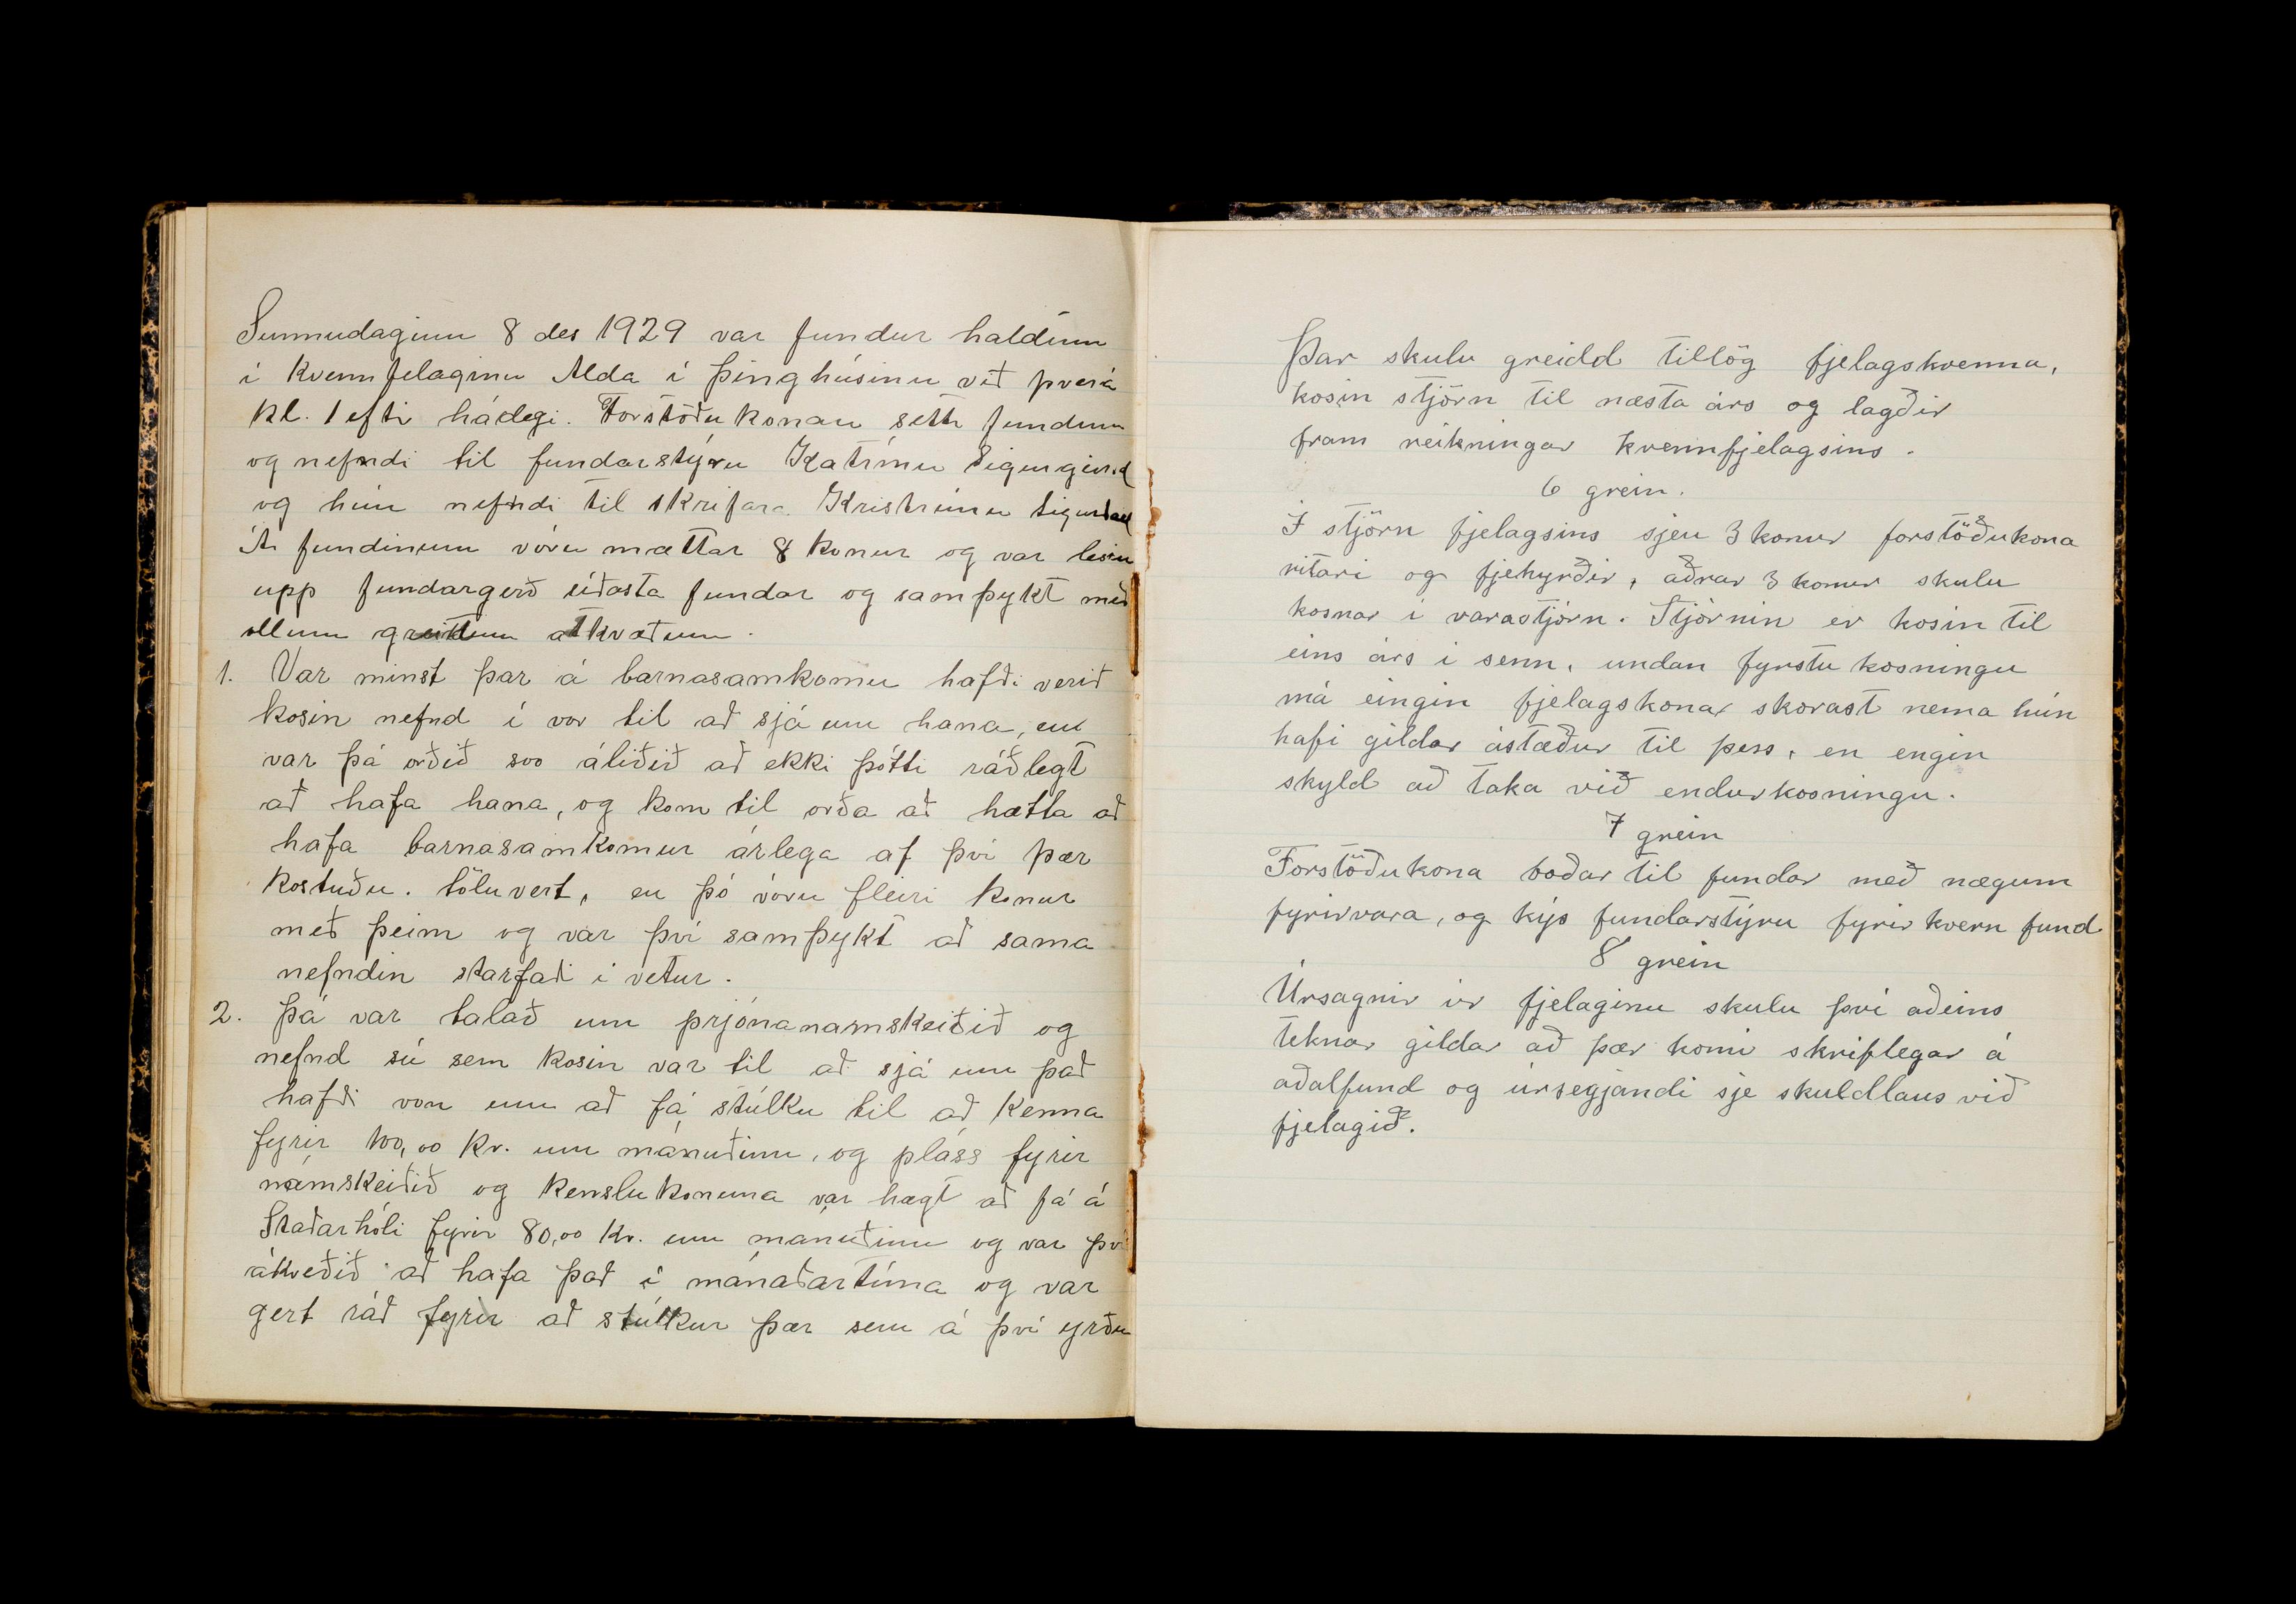 Sunnudaginn 8 des 1929 var fundur haldinn
í kvennfelaginu Alda í þinghúsinu við þverá
kl. 1 eftir hádegi. Forstöðukonan setti fundinn
og nefndi til fundarstýru Katrínu Sigurgeirsd
og hún nefndi til skrifara Kristrúnu Sigurðard
Á fundinum vóru mættar 8 konur og var lesin
upp fundargerð síðasta fundar og samþykt með
ollum greiddum atkvæðum.
1. Var minst þar á barnasamkomu hafði verið
kosin nefnd í vor til að sjá um hana, en
var þá orðið svo áliðið að ekki þótti ráðlegt
að hafa hana, og kom til orða að hætta að
hafa barnasamkomur árlega af því þær
kostuðu. töluvert, en þó vóru fleiri konur
með þeim og var því samþykt að sama
nefndin starfaði í vetur.
2. Þá var talað um prjónanamskeiðið og
nefnd sú sem kosin var til að sjá um það
hafði von um að fá stúlku til að kenna
fyrir 100,00 kr. um mánuðinn, og pláss fyrir
námskeiðið og kenslukonuna var hægt að fá á
Staðarhóli fyrir 80,00 kr. um mánuðinn og var því
ákveðið að hafa það í mánaðartíma og var
gert ráð fyrir að stúlkur þær sem á því yrðu
Þar skulu greidd tillög fjelagskvenna,
kosin stjórn til næsta árs og lagðir
fram reikningar kvennfjelagsins.
6 grein.
Í stjórn fjelagsins sjeu 3 konur forstöðukona
ritari og fjehyrðir, aðrar 3 konur skulu
kosnar í varastjórn. Stjórnin er kosin til
eins árs í senn, undan fyrstu kosningu
má eingin fjelagskona skorast nema hún
hafi gildar ástæður til þess, en engin
skyld að taka við endurkosningu.
7 grein
Forstöðukona boðar til fundar með nægum
fyrirvara, og kýs fundarstýru fyrir hvern fund
8 grein
Úrsagnir úr fjelaginu skulu því aðeins
teknar gildar að þær komi skriflegar á
aðalfund og úrsegjandi sje skuldlaus við
fjelagið.